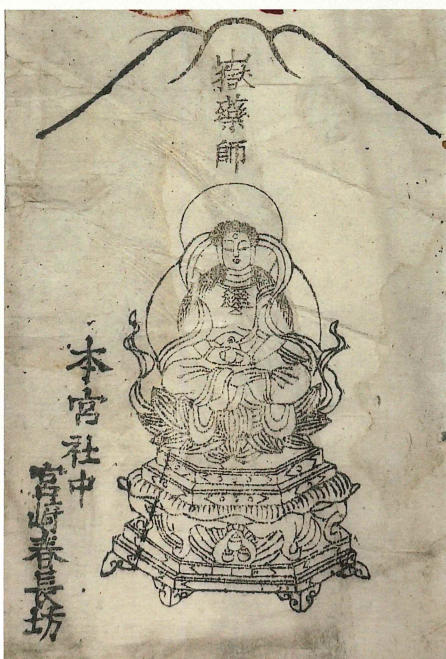 嶽藥師
本宮社中
宮崎春長坊